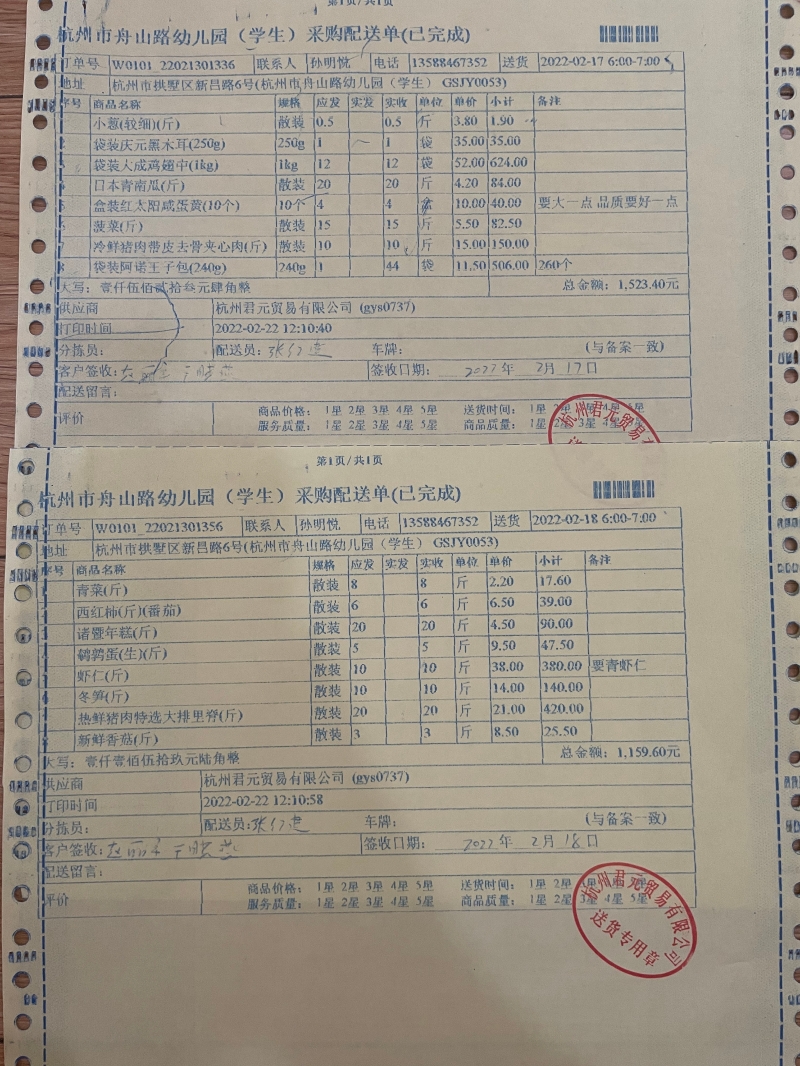 第1页/共1页
杭州市舟山路幼儿园（学生）采购配送单(已完成)
订单号 W0101_22021301336 联系人 孙明悦 电话 13588467352 送货 2022-02-17 6:00-7:00
地址 杭州市拱墅区新昌路6号(杭州市舟山路幼儿园（学生） GSJY0053)
序号 商品名称 规格 应发 实发 实收 单位 单价 小计 备注
小葱(较细)(斤) 散装 0.5 0.5 斤 3.80 1.90
袋装庆元黑木耳(250g) 250g 1 1 袋 35.00 35.00
袋装大成鸡翅中(1kg) 1kg 12 12 袋 52.00 624.00
日本青南瓜(斤) 散装 20 20 斤 4.20 84.00
盒装红太阳咸蛋黄(10个) 10个 4 4 盒 10.00 40.00 要大一点 品质要好一点
菠菜(斤) 散装 15 15 斤 5.50 82.50
冷鲜猪肉带皮去骨夹心肉(斤) 散装 10 10 斤 15.00 150.00
8 袋装阿诺王子包(240g) 240g 1 44 袋 11.50 506.00 260个
大写：壹仟伍佰贰拾叁元肆角整 总金额：1,523.40元
供应商 杭州君元贸易有限公司 (gys0737)
打印时间 2022-02-22 12:10:40
分拣员： 配送员： 车牌： (与备案一致)
客户签收： 签收日期： 2022年 2月 17日
配送留言：
评价 商品价格： 1星 2星 3星 4星 5星 送货时间： 1星 2星 3星 4星 5星
服务质量： 1星 2星 3星 4星 5星 商品质量： 1星 2星 3星 4星 5星
杭州君元贸易有限公司
第1页/共1页
杭州市舟山路幼儿园（学生）采购配送单(已完成)
订单号 W0101_22021301356 联系人 孙明悦 电话 13588467352 送货 2022-02-18 6:00-7:00
地址 杭州市拱墅区新昌路6号(杭州市舟山路幼儿园（学生） GSJY0053)
序号 商品名称 规格 应发 实发 实收 单位 单价 小计 备注
青菜(斤) 散装 8 8 斤 2.20 17.60
西红柿(斤)(番茄) 散装 6 6 斤 6.50 39.00
诸暨年糕(斤) 散装 20 20 斤 4.50 90.00
鹌鹑蛋(生)(斤) 散装 5 5 斤 9.50 47.50
虾仁(斤) 散装 10 10 斤 38.00 380.00 要青虾仁
冬笋(斤) 散装 10 10 斤 14.00 140.00
热鲜猪肉特选大排里脊(斤) 散装 20 20 斤 21.00 420.00
新鲜香菇(斤) 散装 3 3 斤 8.50 25.50
大写：壹仟壹佰伍拾玖元陆角整 总金额：1,159.60元
供应商 杭州君元贸易有限公司 (gys0737)
打印时间 2022-02-22 12:10:58
分拣员： 配送员： 车牌： (与备案一致)
客户签收： 签收日期： 2022年 2月 18日
配送留言：
评价 商品价格： 1星 2星 3星 4星 5星 送货时间： 1星 2星 3星 4星 5星
服务质量： 1星 2星 3星 4星 5星 商品质量： 1星 2星 3星 4星 5星
杭州君元贸易有限公司
送货专用章